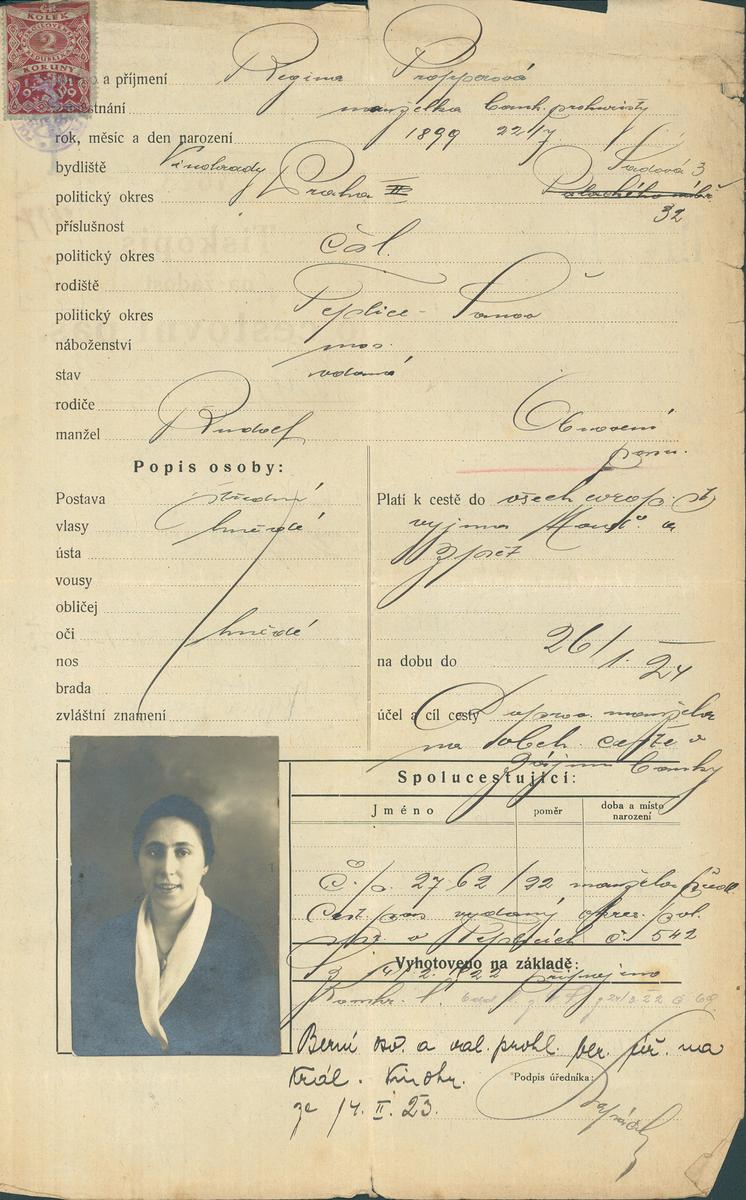 KOLEK
2
KORUNY
a příjmení Regina Propperová
zaměstnání manželka bank. prokuristy
rok, měsíc a den narození 1899 22/7
bydliště Vinohrady Sadová 3
politický okres Praha II Palackého nábř.
32
příslušnost
politický okres čsl.
rodiště
politický okres Teplice - Šanov
náboženství mos.
stav vdaná
rodiče
manžel Rudolf
Obnovení
pasu.
Popis osoby:
Postava střední
vlasy hnědé
ústa
vousy
obličej
oči hnědé
nos
brada
zvláštní znamení
Platí k cestě do všech evrop. st.
vyjma a
zpět
na dobu do 26/1. 24
účel a cíl cesty Doprov. manžela
na obch. cestě v
zájmu banky
Spolucestující:
Jméno poměr doba a místo
narození
Č. p. 2762/22 manžela předl.
Cest. pas vydaný okres. pol.
spr. v Teplicích č. 542
Vyhotoveno na základě:
Berní osv. a val. prohl. ber. úř. na
Král. Vinohr.
ze 14. II. 23.
Podpis úředníka: